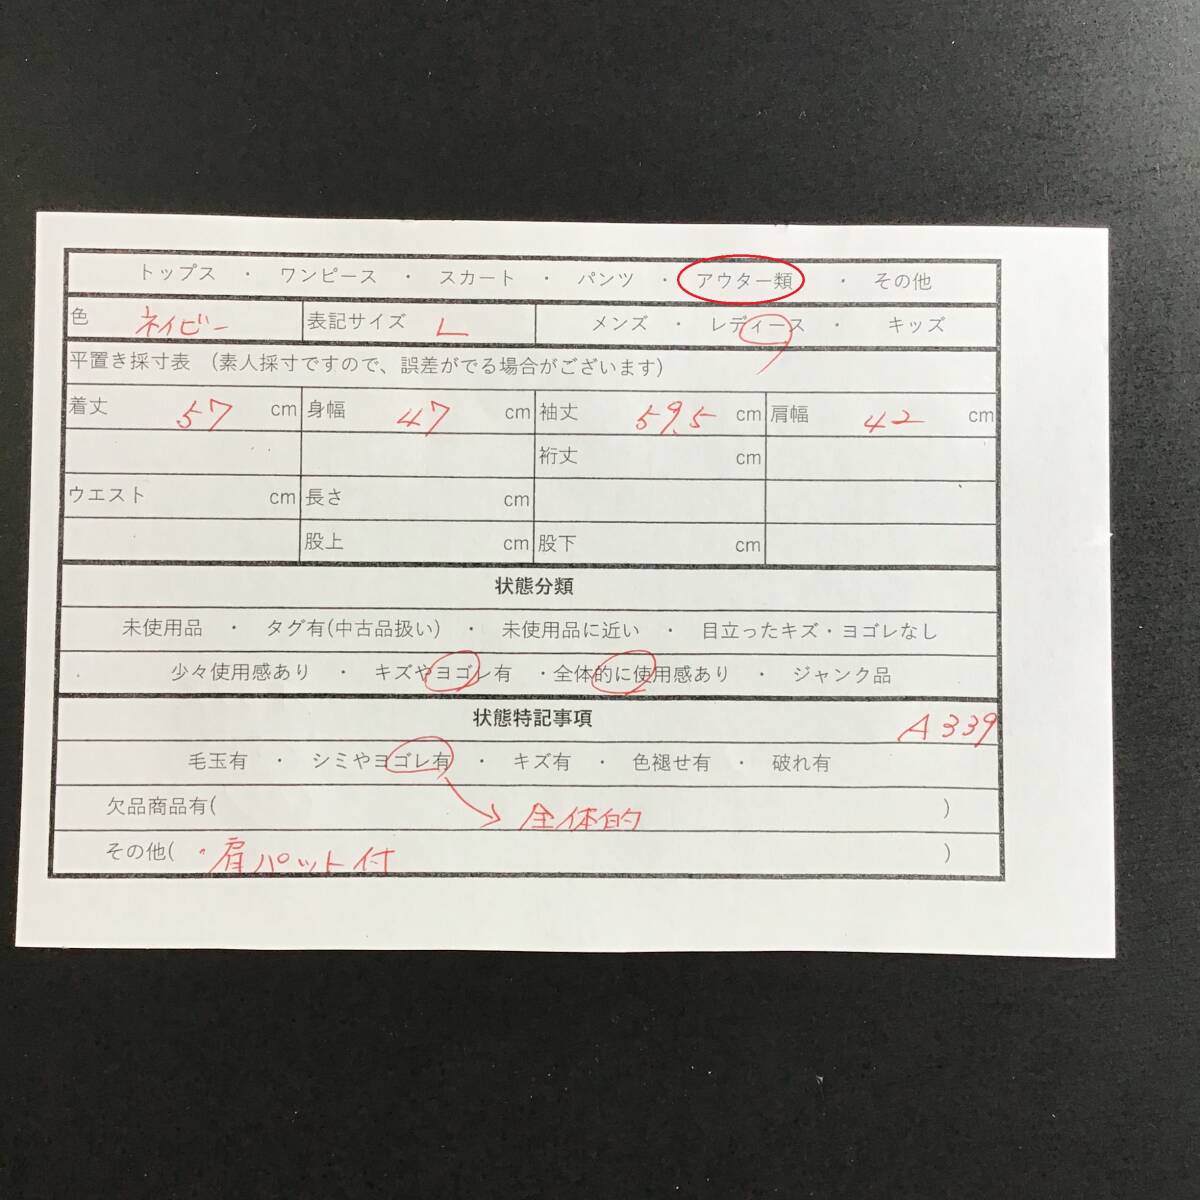 トップス ・ ワンピース ・ スカート ・ パンツ ・ アウター類 ・ その他
色 ネイビー 表記サイズ L メンズ ・ レディース ・ キッズ
平置き採寸表 (素人採寸ですので、誤差がでる場合がございます)
着丈 57 cm 身幅 47 cm 袖丈 59.5 cm 肩幅 42 cm
裄丈 cm
ウエスト cm 長さ cm
股上 cm 股下 cm
状態分類
未使用品 ・ タグ有(中古品扱い) ・ 未使用品に近い ・ 目立ったキズ・ヨゴレなし
少々使用感あり ・ キズやヨゴレ有 ・全体的に使用感あり ・ ジャンク品
状態特記事項 A339
毛玉有 ・ シミやヨゴレ有 ・ キズ有 ・ 色褪せ有 ・ 破れ有
欠品商品有( 全体的 )
その他( ・肩パット付 )